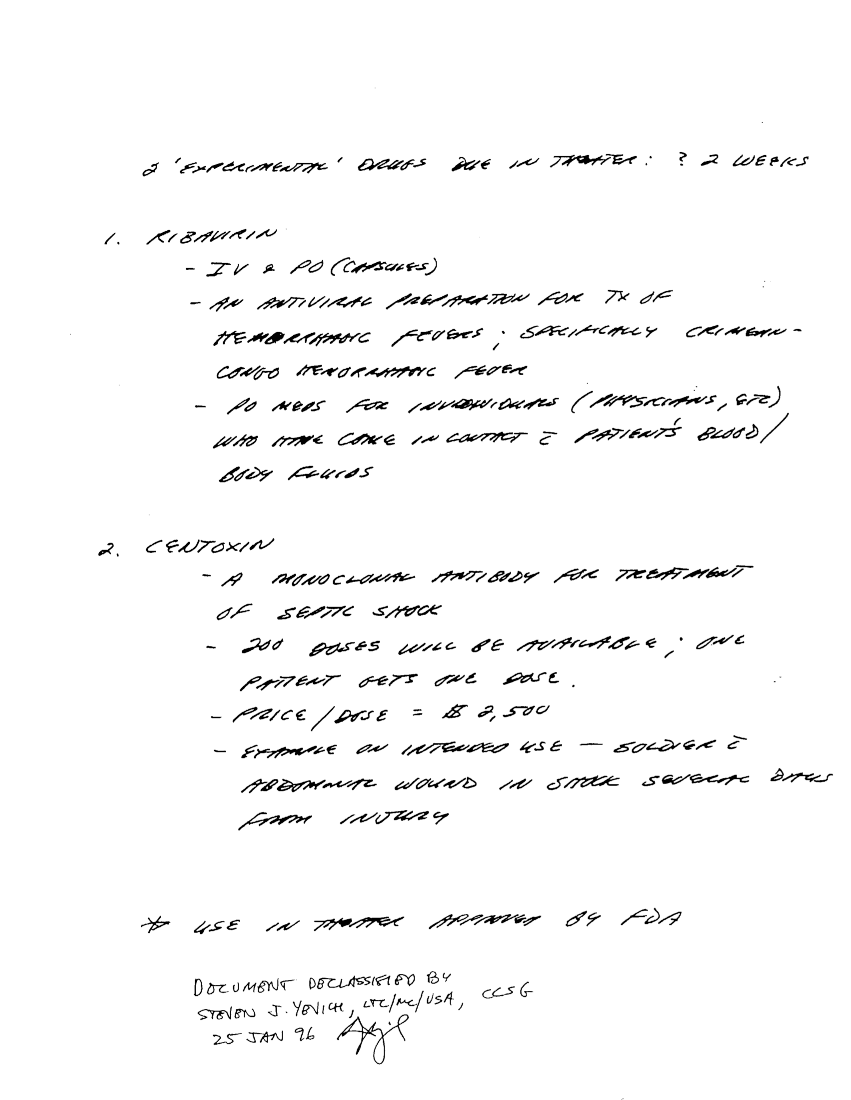 2 'EXPERIMENTAL' DRUGS DUE IN THEATER: ? 2 WEEKS
1. RIBAVIRIN
- IV & PO (CAPSULES)
- AN ANTIVIRAL PREPARATION FOR TX OF
HEMORRHAGIC FEVERS; SPECIFICALLY CRIMEAN-
CONGO HEMORRHAGIC FEVER
- PO MEDS FOR INDIVIDUALS (PHYSICIANS, ETC)
WHO HAVE COME IN CONTACT c̄ PATIENT'S BLOOD/
BODY FLUIDS
2. CENTOXIN
- A MONOCLONAL ANTIBODY FOR TREATMENT
OF SEPTIC SHOCK
- 200 DOSES WILL BE AVAILABLE; ONE
PATIENT GETS ONE DOSE.
- PRICE/DOSE = $ 2,500
- EXAMPLE ON INTENDED USE — SOLDIER c̄
ABDOMINAL WOUND IN SHOCK SEVERAL DAYS
FROM INJURY
* USE IN THEATER APPROVED BY FDA
DOCUMENT DECLASSIFIED BY
STEVEN J. YEVICH, LTC/MC/USA, CCSG
25 JAN 96